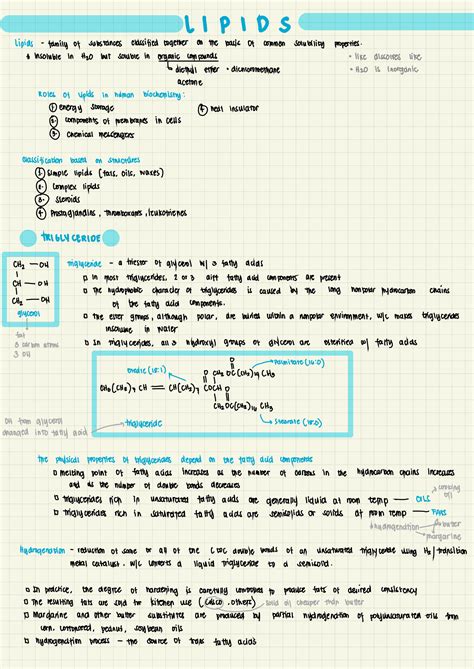 LIPIDS
Lipids - family of substances classified together on the basis of common solubility properties.
insoluble in H₂O but soluble in organic compounds
• like dissolves like
diethyl ether • dichloromethane
• H₂O is inorganic
acetone
Roles of lipids in human biochemistry:
① energy storage
④ heat insulator
2. components of membranes in cells
3. chemical messengers
classification based on structures
① simple lipids (fats, oils, waxes)
2. complex lipids
3. steroids
4. Prostaglandins, thromboxanes, leukotrienes
TRIGLYCERIDE
CH₂ — OH
CH — OH
CH₂ — OH
glycerol
fat
3 carbon atoms
3 OH
Triglyceride - a triester of glycerol w/ 3 fatty acids
In most triglycerides, 2 or 3 diff fatty acid components are present
The hydrophobic character of triglycerides is caused by the long nonpolar hydrocarbon chains
of the fatty acid components.
The ester groups, although polar, are buried within a nonpolar environment, w/c makes triglycerides
insoluble in water
In triglycerides, all 3 hydroxyl groups of glycerol are esterified w/ fatty acids
oleic (18:1)
palmitate (16:0)
O
CH₂OC(CH₂)₁₄ CH₃
O
CH₃(CH₂)₇ CH = CH(CH₂)₇ COCH
O
CH₂OC(CH₂)₁₆ CH₃
stearate (18:0)
triglyceride
OH from glycerol
changed into fatty acid
The physical properties of triglycerides depend on the fatty acid components
melting point of fatty acids increases as the number of carbons in the hydrocarbon chains increases
and as the number of double bonds decreases
cooking oil
triglycerides rich in unsaturated fatty acids are generally liquid at room temp — OILS
triglycerides rich in saturated fatty acids are semisolids or solids at room temp — FATS
hydrogenation
butter
margarine
Hydrogenation - reduction of some or all of the C=C double bonds of an unsaturated triglyceride using H₂/transition
metal catalyst. w/c converts a liquid triglyceride to a semisolid.
In practice, the degree of hardening is carefully controlled to produce fats of desired consistency
The resulting fats are sold for kitchen use (Crisco, others)
cheaper than butter
Margarine and other butter substitutes are produced by partial hydrogenation of polyunsaturated oils from
corn, cottonseed, peanut, soybean oils
hydrogenation process - the source of trans fatty acids